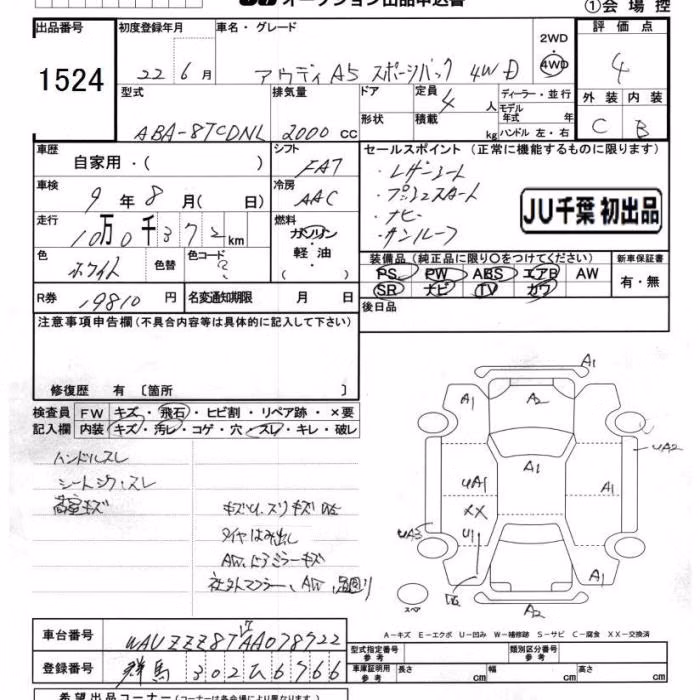 オークション出品申込書
①会場控
出品番号 初度登録年月 車名・グレード 2WD 評価点
1524 22 6月 アウディ A5 スポーツバック 4WD 4WD 4
型式 排気量 ドア 定員 4 人 ディーラー・並行 外装 内装
ABA-8TCDNL 2000 cc 形状 積載 kg モデル年式 年 ハンドル 左・右 C B
車歴 自家用・( ) シフト FA7 セールスポイント (正常に機能するものに限ります)
車検 9年 8月( 日) 冷房 AAC ・レザーシート
・プッシュスタート
・ナビ
・サンルーフ
JU千葉 初出品
走行 10万0千372km 燃料 ガソリン・軽油
色 ホワイト 色替 色コード ? 装備品 (純正品に限り○をつけてください) 新車保証書
( ) PS PW ABS エアB AW 有・無
R券 19810円 名変通知期限 月 日 SR ナビ TV カワ
注意事項申告欄(不具合内容等は具体的に記入して下さい) 後日品
修復歴 有 〔箇所 〕
検査員 FW キズ・飛石・ヒビ割・リペア跡・×要
記入欄 内装 キズ・汚レ・コゲ・穴・スレ・キレ・破レ
ハンドルスレ
シートシワ・スレ
荷室キズ キズU、スリキズ
タイヤはみ出し
AW、ドアミラーキズ
社外マフラー、AW、足廻り
A1
A1 A2
A1 UA2
UA1 A1
XX
UA3 U1
A1
スペア A2
A-キズ E-エクボ U-凹み W-補修跡 S-サビ C-腐食 XX-交換済
車台番号 WAUZZZ8T AA078922
17
登録番号 群馬 302 ひ 6966
型式指定番号 参考 類別区分番号 参考
車庫証明用 参考 長さ cm 幅 cm 高さ cm
希望出品コーナー(コーナーは各会場により異なります)